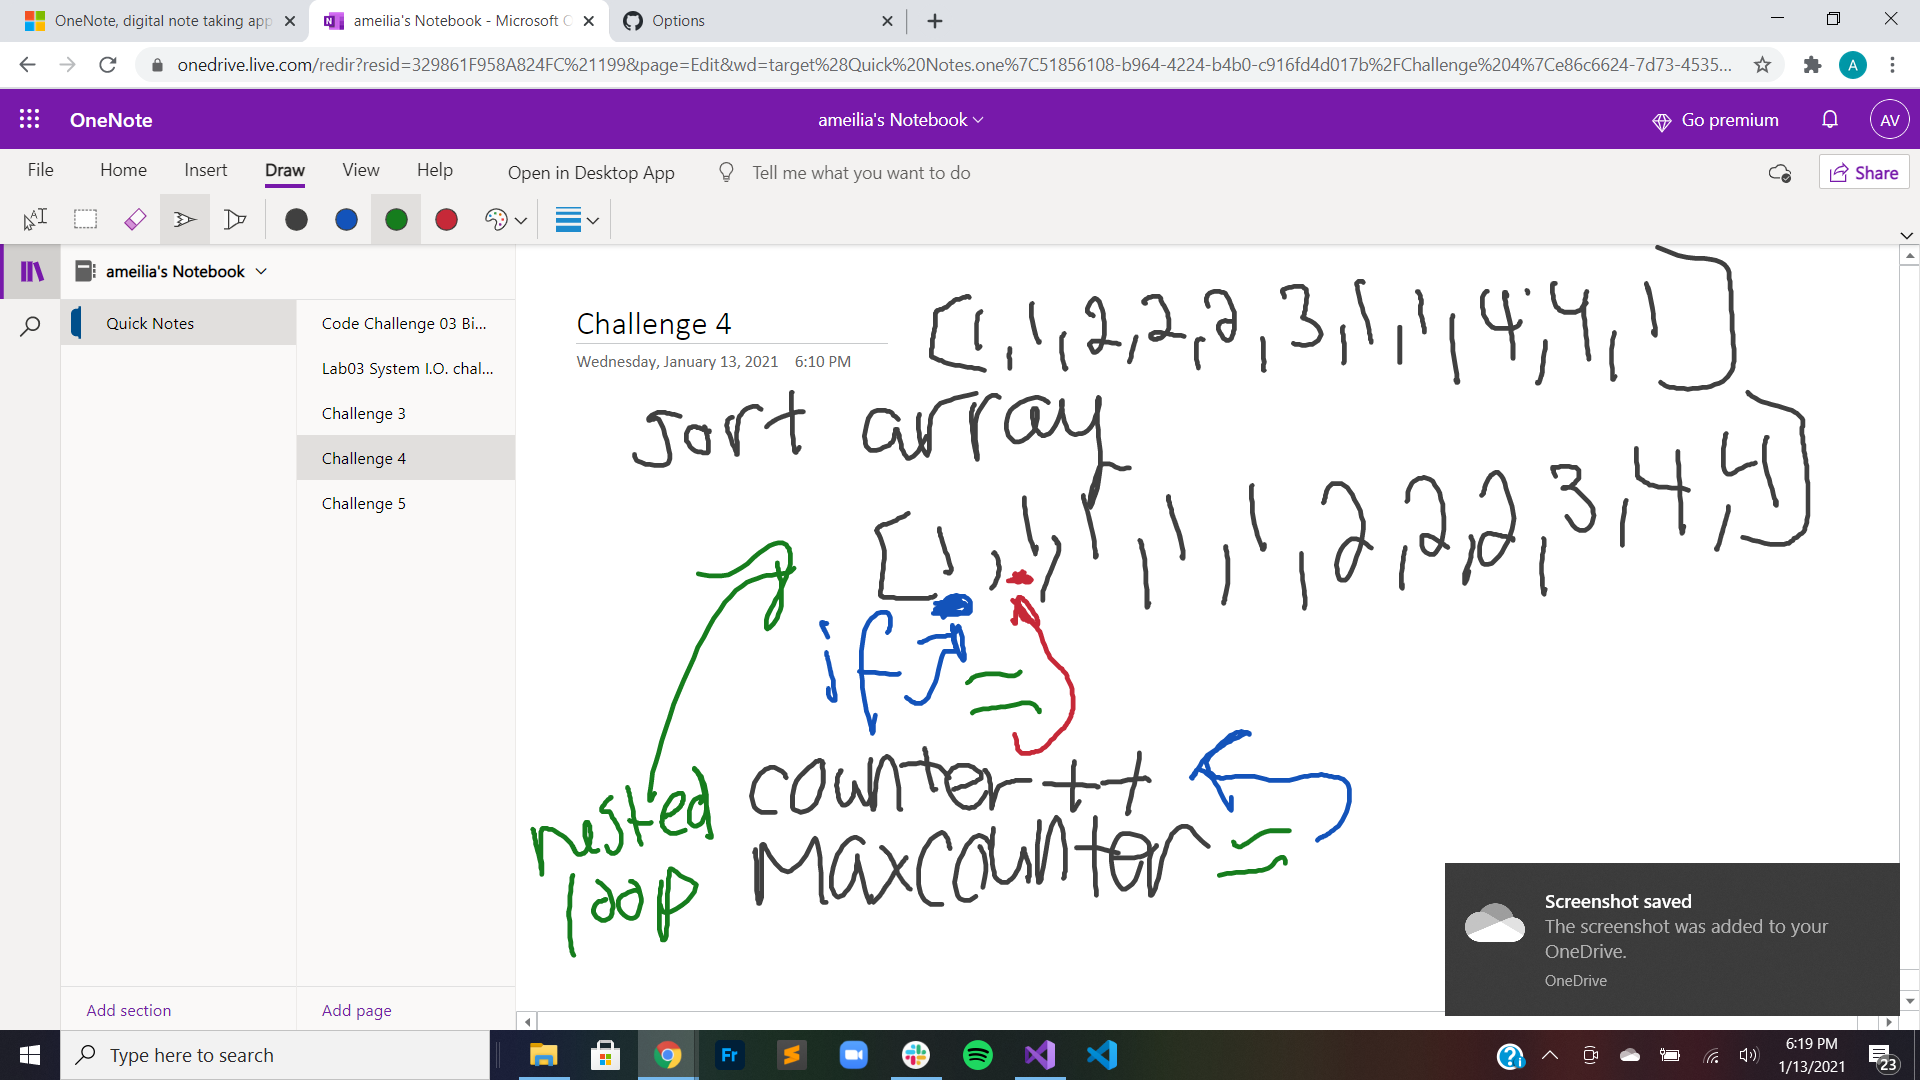 OneNote, digital note taking app
ameilia's Notebook - Microsoft O
Options
onedrive.live.com/redir?resid=329861F958A824FC%21199&page=Edit&wd=target%28Quick%20Notes.one%7C51856108-b964-4224-b4b0-c916fd4d017b%2FChallenge%204%7Ce86c6624-7d73-4535...
A
OneNote
ameilia's Notebook
Go premium
AV
File Home Insert Draw View Help Open in Desktop App Tell me what you want to do
Share
ameilia's Notebook
Quick Notes
Code Challenge 03 Bi...
Lab03 System I.O. chal...
Challenge 3
Challenge 4
Challenge 5
Add section
Add page
Challenge 4
Wednesday, January 13, 2021 6:10 PM
[1,1,2,2,2,3,1,1,4,4,1]
sort array
[1,1,1,1,1,2,2,2,3,4,4]
if =
counter++
Maxcounter =
nested
loop
Screenshot saved
The screenshot was added to your
OneDrive.
OneDrive
Type here to search
Fr
6:19 PM
1/13/2021
23